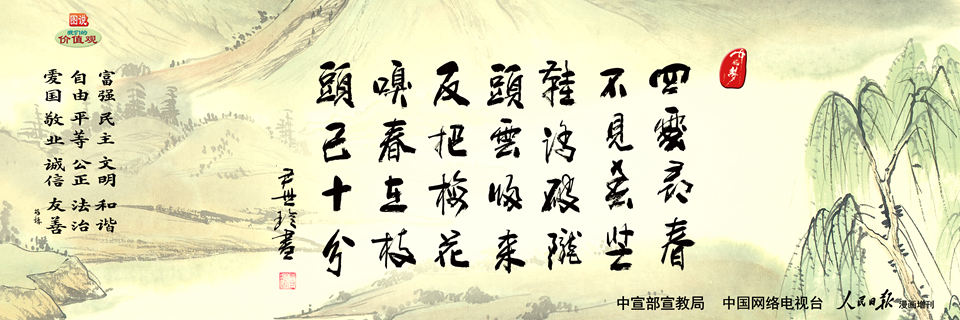 中国梦
四處尋春
不見春芒
鞋踏破隴
頭雲歸來
反把梅花
嗅春在枝
頭已十分
图说
我们的
价值观
富强 民主 文明 和谐
自由 平等 公正 法治
爱国 敬业 诚信 友善
中宣部宣教局 中国网络电视台 人民日报 漫画增刊